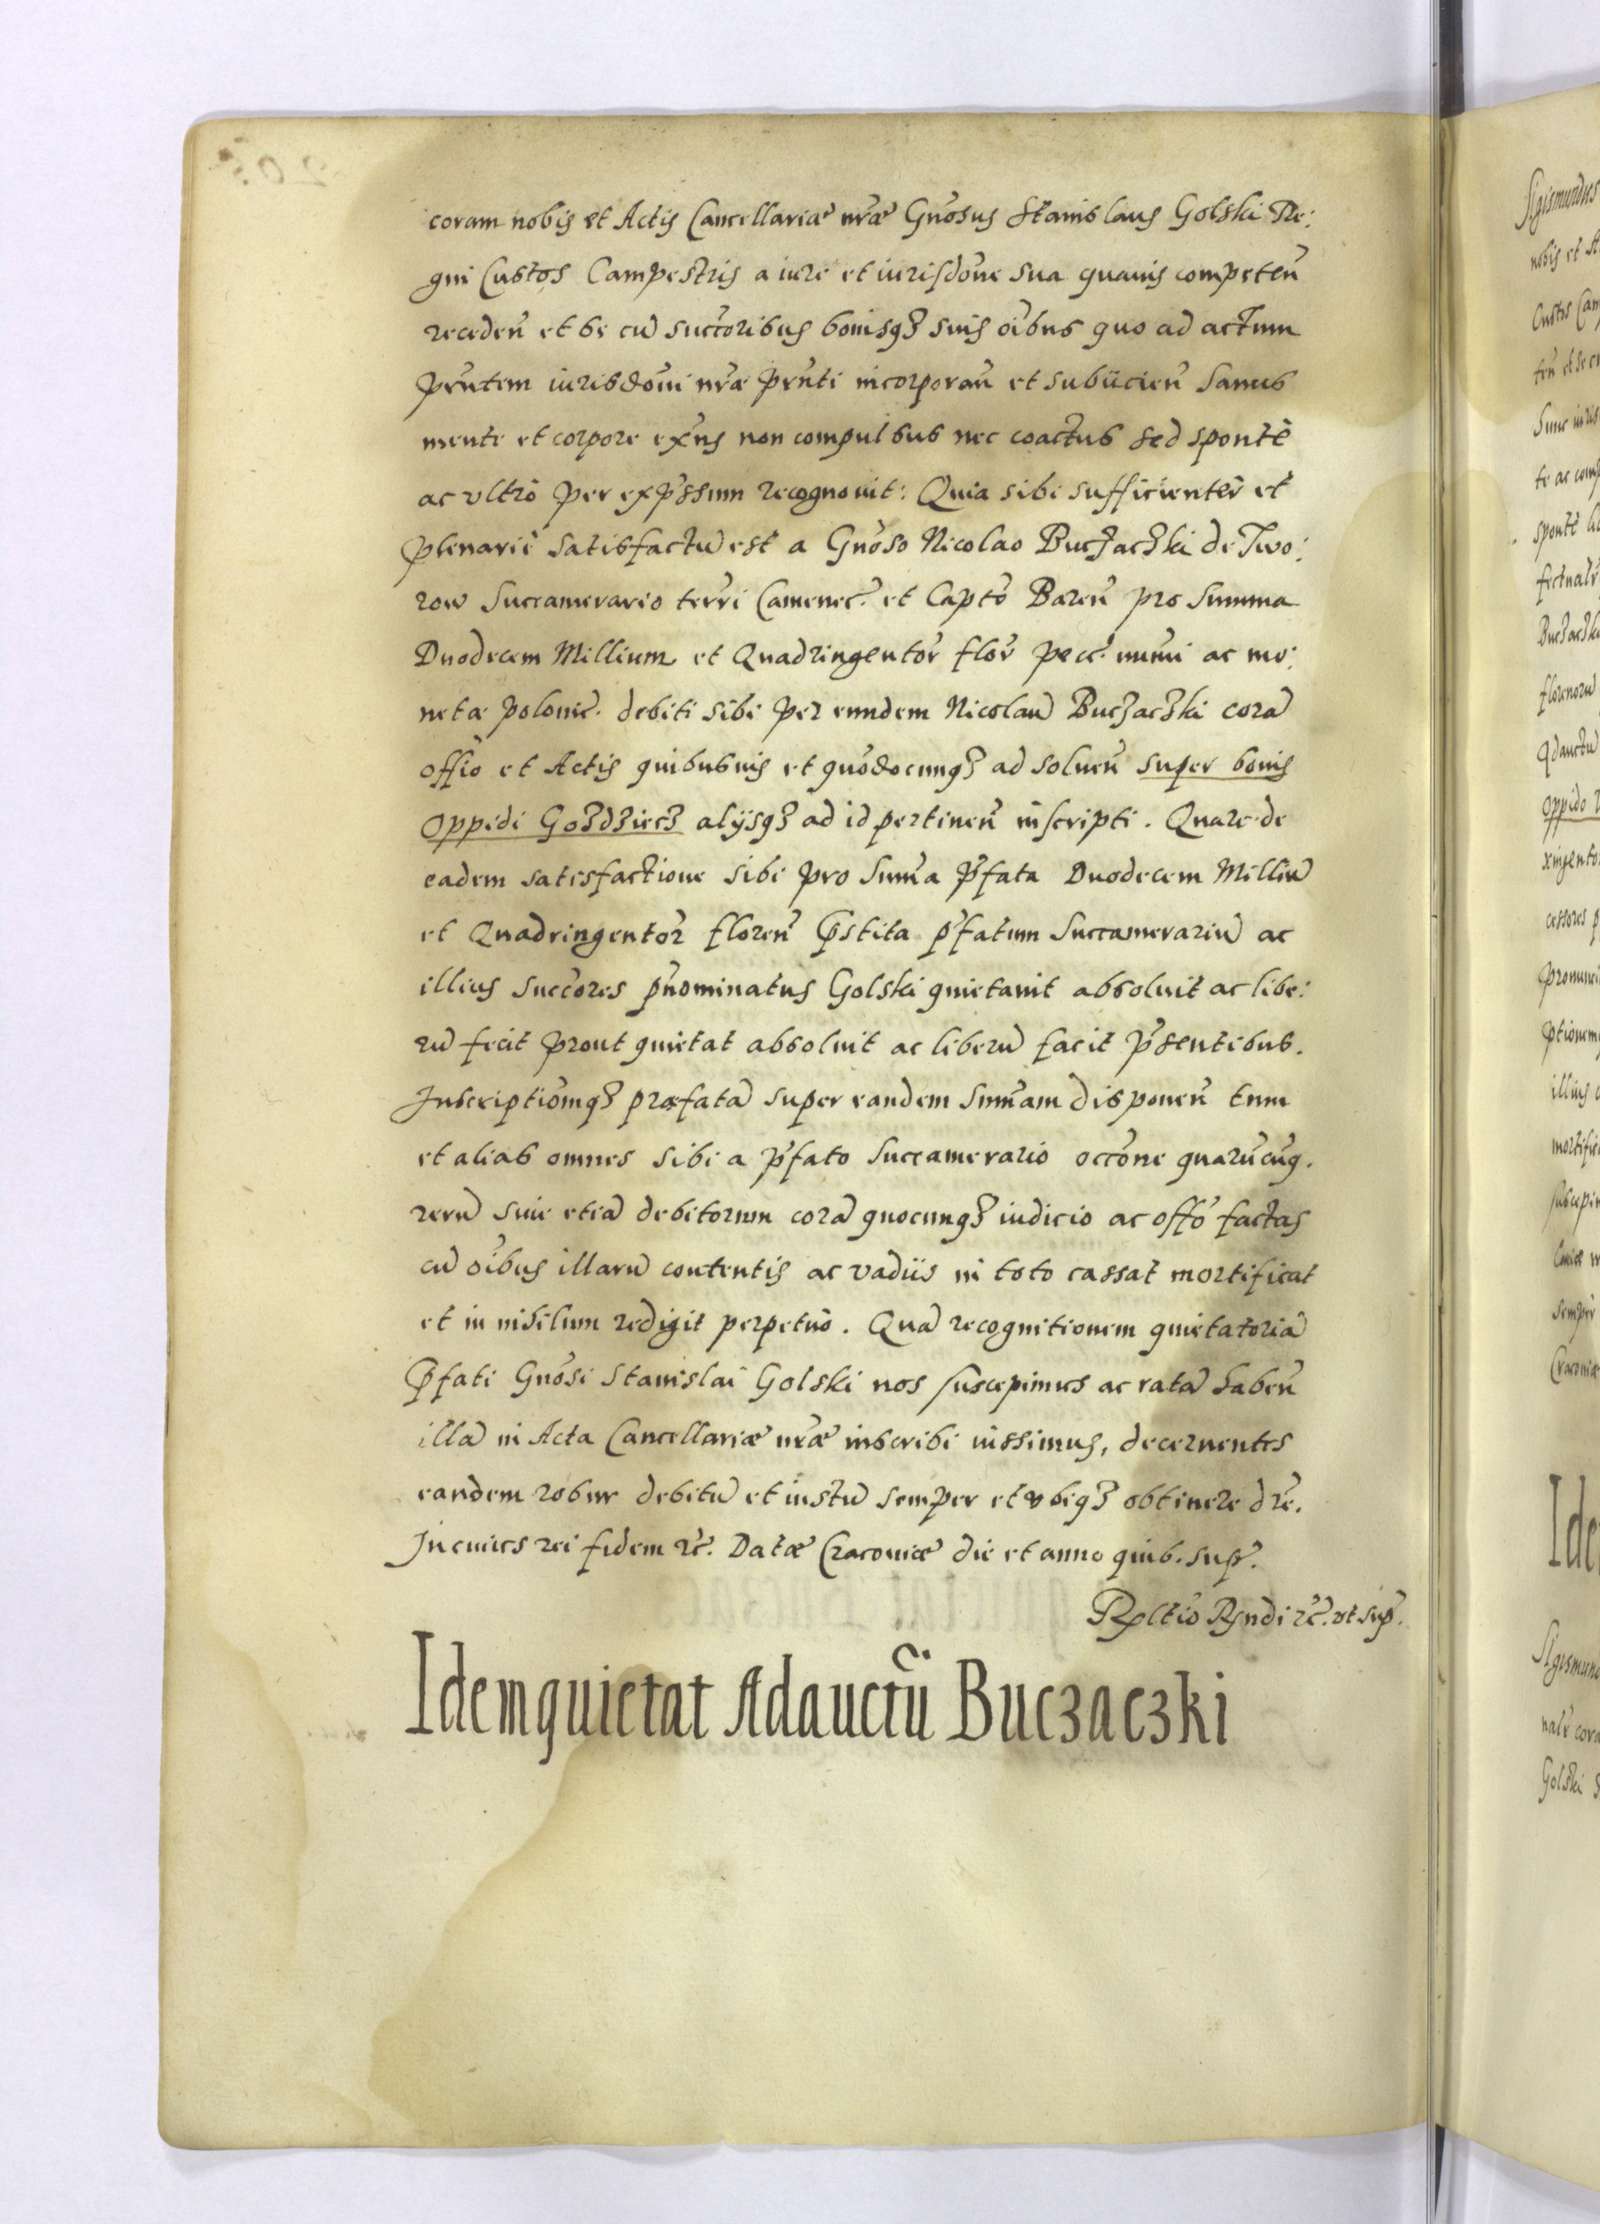 coram nobis et Actis Cancellariæ nr̃æ Gnõsus Stanislaus Golski Re:
gni Custos Campestris a iure et iurisdõne sua quauis competeñ
recedeñ et se cũ succoribus bonisq3 suis oĩbus quo ad actum
pr̃ntem iurisdõni nr̃æ pr̃nti incorporañ et subiicieñ Sanus
mente et corpore ex̃ns non compulsus nec coactus sed spontè
ac vltrò per exp̃ssum recognouit: Quia sibi sufficientèr et
plenariè satisfactũ est a Gnõso Nicolao Buczaczki de Two:
row Succamerario terr̃i Camenec̃. et Captõ Bareñ pro Summa
Duodecem Millium et Quadringentor̃ flor̃ pecc̃. num̃i ac mo:
netæ polonic̃. debiti sibi per eundem Nicolaũ Buczaczki corã
offĩo et Actis quibusuis et quõdocunq3 ad solueñ super bonis
Oppidi Gozdziecz alÿsq3 ad id pertineñ inscripti. Quare de
eadem satisfactione sibi pro Sum̃a p̃fata Duodecem Milliũ
et Quadringentor̃ floreñ p̃stita p̃fatum Succamerariũ ac
illius succores p̃nominatus Golski quietauit absoluit ac libe:
rũ fecit prout quietat absoluit ac liberũ facit p̃sentibus.
Inscriptiõmq3 præfatã super eandem Sum̃am disponeñ tum
et alias omnes sibi a p̃fato Succamerario occõne quarũcũq.
rerũ siue etiã debitorum corã quocunq3 iudicio ac offõ factas
cũ oĩbus illarũ contentis ac vadiis in toto cassat mortificat
et in nihilum redigit perpetuò. Quã recognitionem quietatoriã
p̃fati Gnõsi Stanislai Golski nos suscepimus ac ratã habeñ
illã in Acta Cancellariæ nr̃æ inscribi iussimus, decernentes
eandem robur debitũ et iustũ semper et vbiq3 obtinere dr̃e.
In cuius rei fidem rc̃. Datæ Cracouiæ die et anno quib. sup̃.
Rx̃ltio Rx̃ndi rc̃. vt sup̃.
Idem quietat Adauctũ Buczaczki